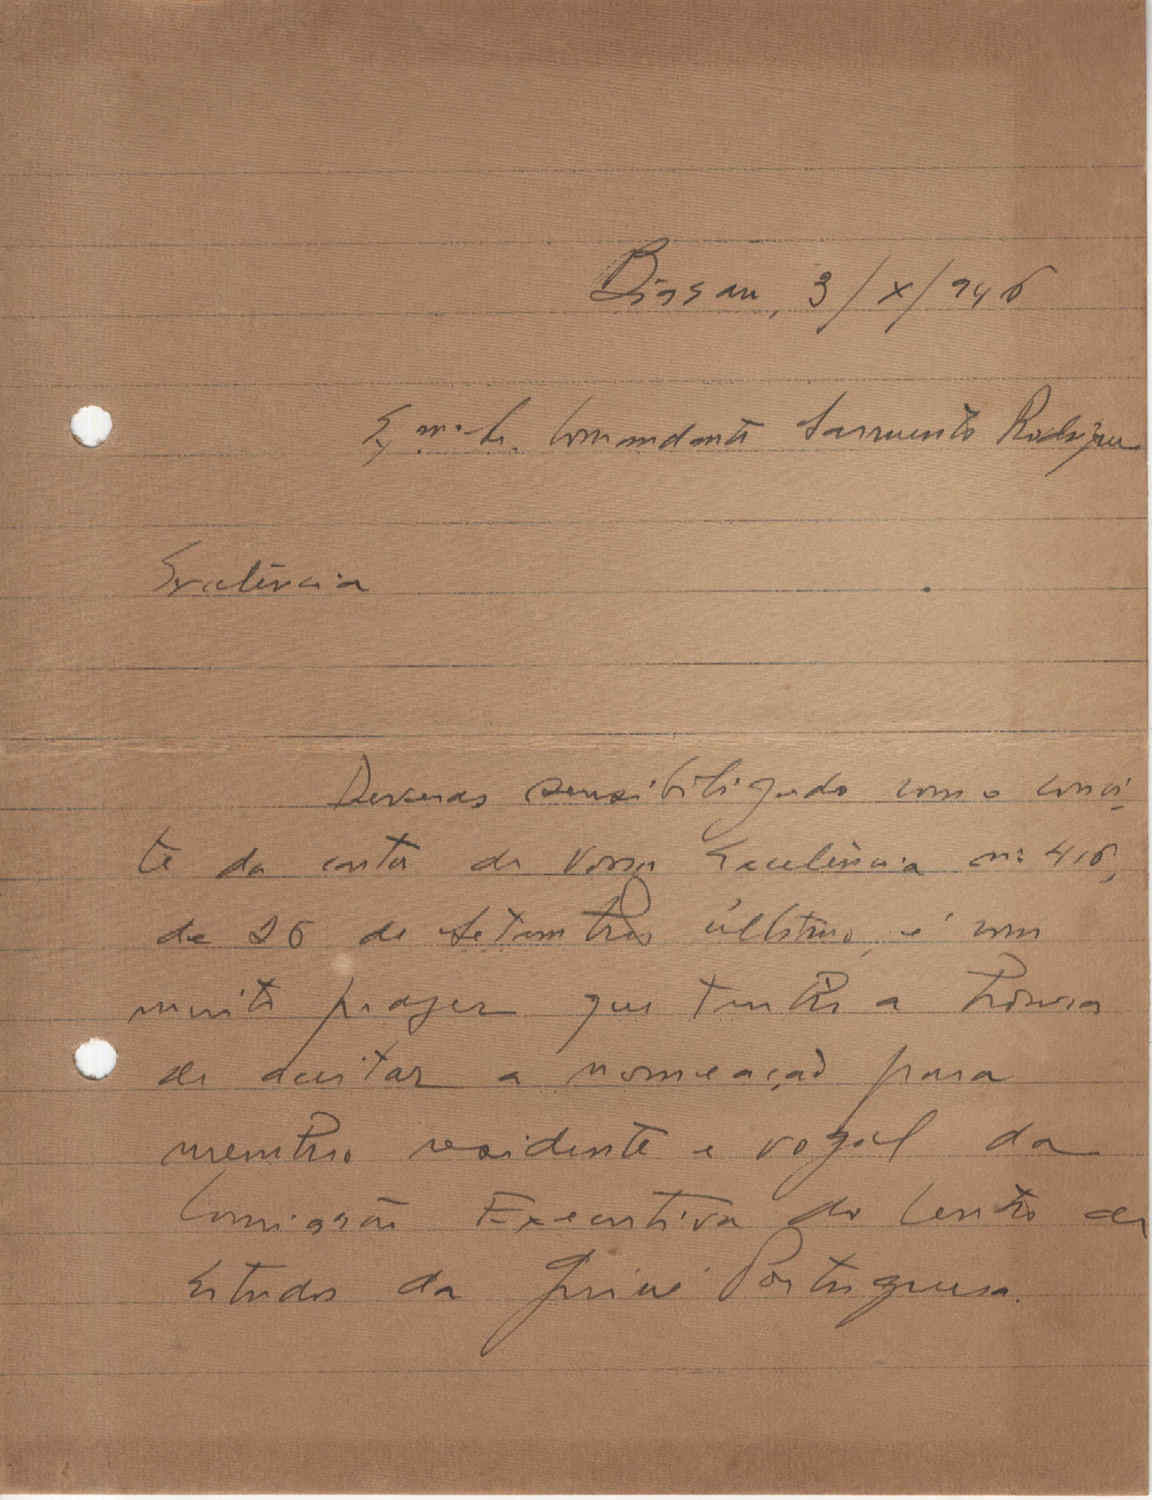 Bissau, 3/X/946
Ex.mo Sr. Comandante Sarmento Rodrigues
Excelência
Deveras sensibilizado com o convi-
te da carta de Vossa Excelência nº 416,
de 26 de Setembro último, é com
muito prazer que tenho a honra
de aceitar a nomeação para
membro residente e vogal da
Comissão Executiva do Centro de
Estudos da Guiné Portuguesa.